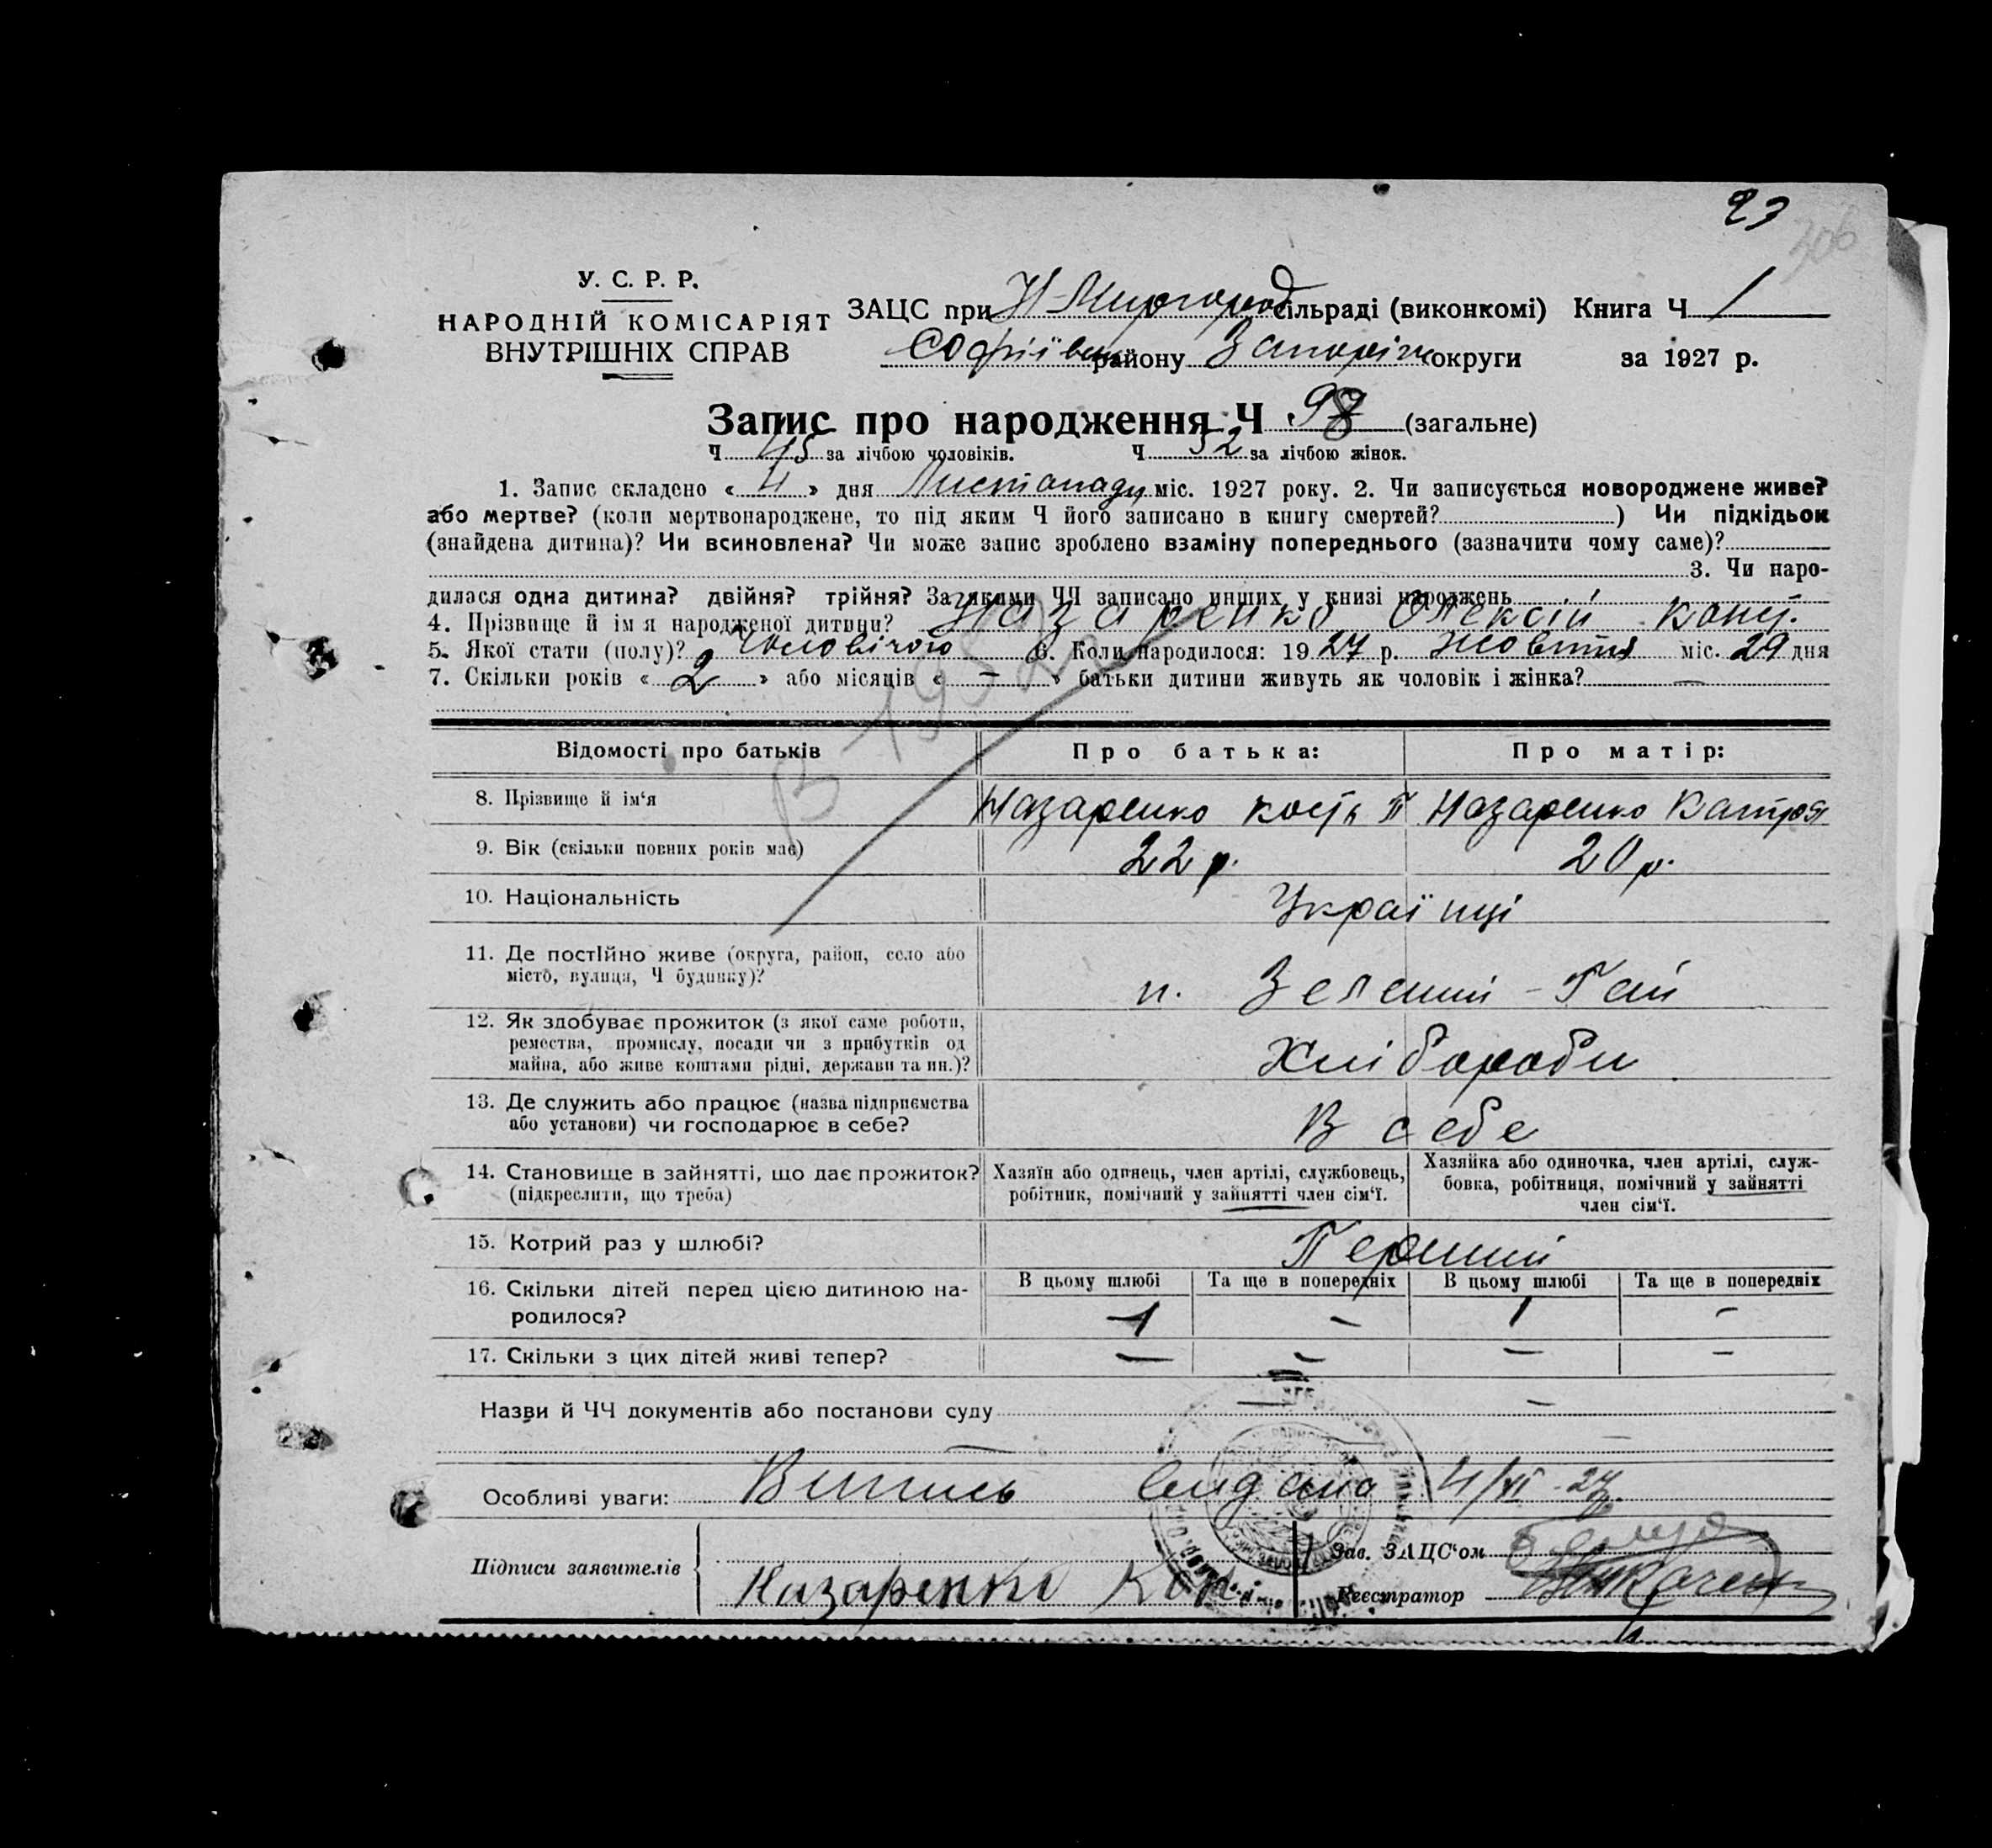 23
306
У. С. Р. Р.
НАРОДНІЙ КОМІСАРІЯТ
ВНУТРІШНІХ СПРАВ
ЗАЦС при Н-Миргород сільраді (виконкомі) Книга Ч 1
Софіївськ району Запоріж округи за 1927 р.
Запис про народження Ч 98 (загальне)
Ч 45 за лічбою чоловіків. Ч 52 за лічбою жінок.
1. Запис складено « 4 » дня Листопаду міс. 1927 року. 2. Чи записується новороджене живе?
або мертве? (коли мертвонароджене, то під яким Ч його записано в книгу смертей? ) Чи підкідьок
(знайдена дитина)? Чи всиновлена? Чи може запис зроблено взаміну попереднього (зазначити чому саме)?
3. Чи наро-
дилася одна дитина? двійня? трійня? За якими ЧЧ записано инших у книзі народжень
4. Прізвище й ім'я народженої дитини? Назаренко Олексій Конст.
5. Якої стати (полу)? Чоловічого 6. Коли народилося: 1927 р. Жовтня міс. 29 дня
7. Скільки років « 2 » або місяців « — » батьки дитини живуть як чоловік і жінка? —
Відомості про батьків Про батька: Про матір:
8. Прізвище й ім'я Назаренко Кость П Назаренко Катря
9. Вік (скільки повних років має) 22 р. 20 р.
10. Національність Українці
11. Де постійно живе (округа, район, село або
місто, вулиця, Ч будинку)?
п. Зелений-Гай
12. Як здобуває прожиток (з якої саме роботи,
ремества, промислу, посади чи з прибутків од
майна, або живе коштами рідні, держави та ин.)?
Хлібороби
13. Де служить або працює (назва підприємства
або установи) чи господарює в себе?
В себе
14. Становище в зайнятті, що дає прожиток?
(підкреслити, що треба)
Хазяїн або одинець, член артілі, службовець,
робітник, помічний у зайнятті член сім'ї.
Хазяйка або одиночка, член артілі, служ-
бовка, робітниця, помічний у зайнятті
член сім'ї.
15. Котрий раз у шлюбі? Перший
16. Скільки дітей перед цією дитиною на-
родилося?
В цьому шлюбі Та ще в попередніх В цьому шлюбі Та ще в попередніх
1 — 1 —
17. Скільки з цих дітей живі тепер? — — — —
Назви й ЧЧ документів або постанови суду — —
Особливі уваги: Випись видана 4/XI-27.
Підписи заявителів
Назаренко Кон
Зав. ЗАЦС'ом
Реєстратор